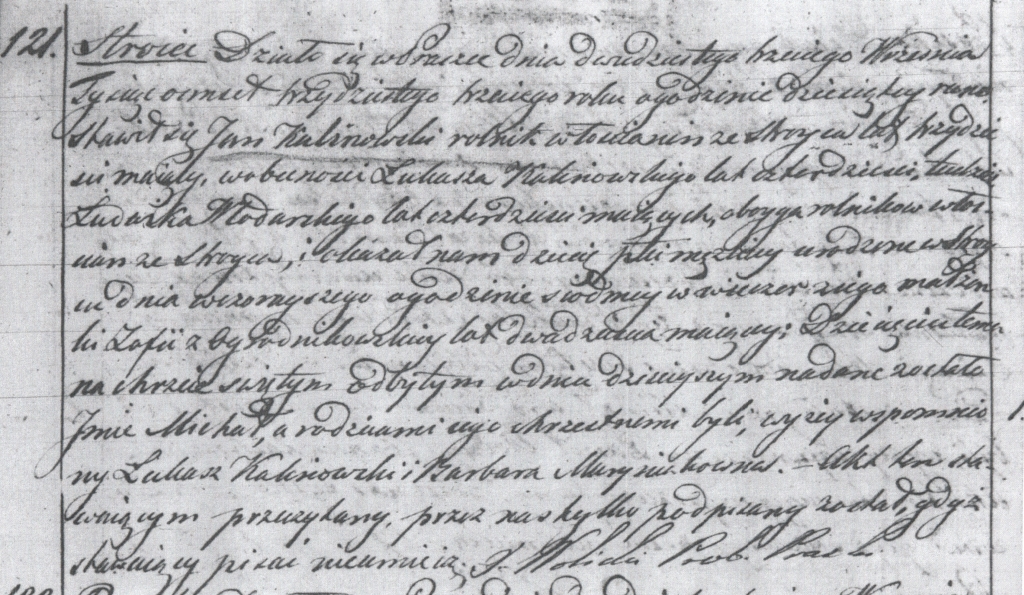 121. Stroiec Działo się w Praszce dnia dwudziestego trzeciego Września
Tysiąc ośmset trzydziestego trzeciego roku o godzinie dziesiątey rano.
Stawił się Jan Kalinowski rolnik włościanin ze Stroyca lat trzydzie
ści maiący, w obecności Łukasza Kalinowskiego lat czterdzieści, tudzież
Ludwika Włodarskiego lat czterdzieści maiących, oboyga rolników włoś-
cian ze Stroyca, i okazał nam dziecię płci męzkiey urodzone w Stroy
cu dnia wczorayszego o godzinie siódmey w wieczór z iego małżon
ki Zofii z Ogrodnikowskich lat dwadzieścia maiącey; Dziecięciu temu
na chrzcie świętym odbytym w dniu dzisieyszym nadane zostało
Imie Michał, a rodzicami iego chrzestnemi byli, wyżey wspomnio
ny Łukasz Kalinowski i Barbara Maryniakowna. – Akt ten sta-
waiącym przeczytany, przez nas tylko podpisany został, gdyż
stawaiący pisać nieumieią.